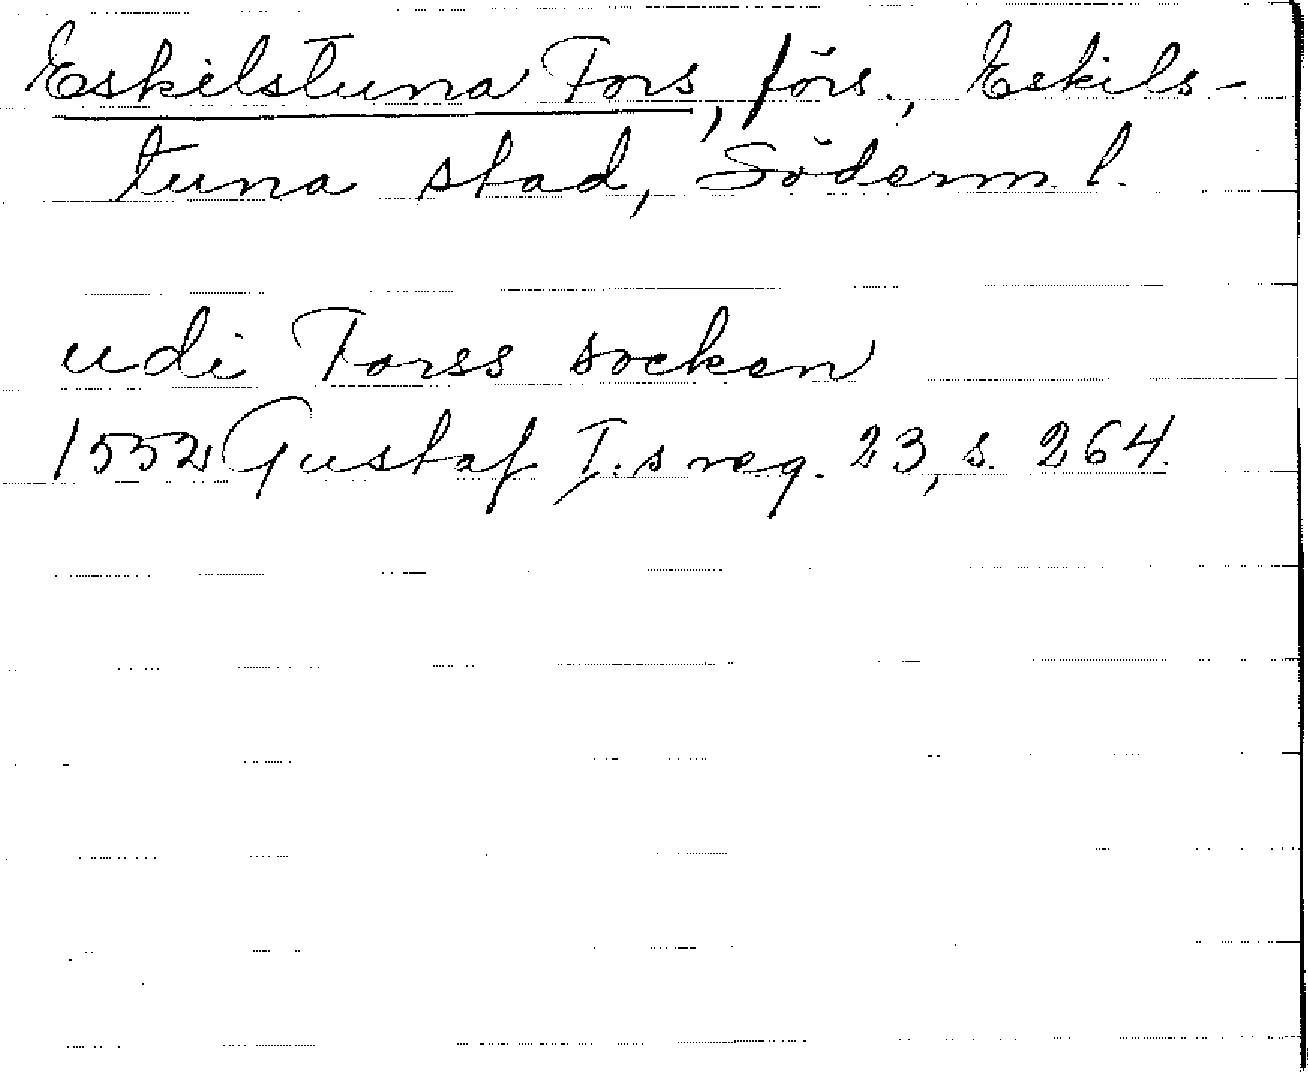 Eskilstuna Fors, förs., Eskils-
tuna stad, Söderm. l.
udi Forss socken
1552 Gustaf I.s reg. 23, s. 264.